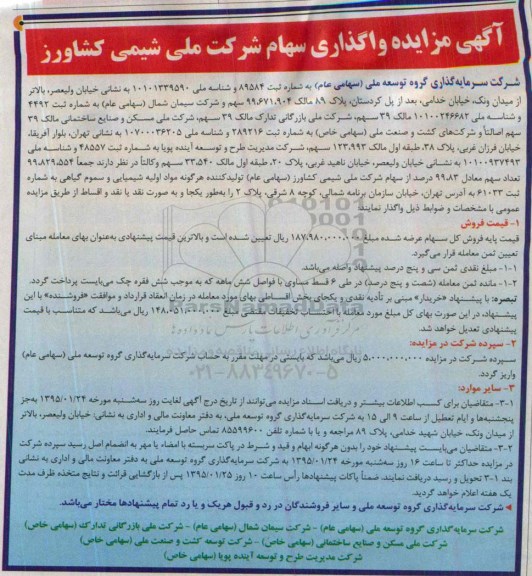 آگهی مزایده واگذاری سهام شرکت ملی شیمی کشاورز
شرکت سرمایه‌گذاری گروه توسعه ملی (سهامی عام) به شماره ثبت ۸۹۵۸۴ و شناسه ملی ۱۰۱۰۱۳۳۹۵۹۰ به نشانی خیابان ولیعصر، بالاتر
از میدان ونک، خیابان خدامی، بعد از پل کردستان، پلاک ۸۹ مالک ۹۹،۶۷۱،۹۰۴ سهم و شرکت سیمان شمال (سهامی عام) به شماره ثبت ۴۴۹۲
و شناسه ملی ۱۰۱۰۰۲۴۶۶۸۲ مالک ۳۹ سهم، شرکت ملی بازرگانی تدارک مالک ۳۹ سهم، شرکت ملی مسکن و صنایع ساختمانی مالک ۳۹
سهم اصالتاً و شرکت‌های کشت و صنعت ملی (سهامی خاص) به شماره ثبت ۲۸۹۲۱۶ و شناسه ملی ۱۰۷۰۰۰۳۶۲۰۵ به نشانی تهران، بلوار آفریقا،
خیابان فرزان غربی، پلاک ۳۸، طبقه اول مالک ۱۲۳،۹۹۲ سهم، شرکت مدیریت طرح و توسعه آینده پویا به شماره ثبت ۴۸۵۵۷ و شناسه ملی
۱۰۱۰۰۹۳۷۴۹۳ به نشانی خیابان ولیعصر، خیابان ناهید غربی، پلاک ۲۰، طبقه اول مالک ۳۳،۵۴۰ سهم وکالتاً در نظر دارند جمعاً ۹۹،۸۲۹،۵۵۴
تعداد سهم معادل ۹۹،۸۳ درصد از سهام شرکت ملی شیمی کشاورز (سهامی عام) تولیدکننده هرگونه مواد اولیه شیمیایی و سموم گیاهی به شماره
ثبت ۶۱۰۳۳ به آدرس تهران، خیابان سازمان برنامه شمالی، کوچه ۸ شرقی، پلاک ۲ را به‌طور یکجا و به صورت نقد یا نقد و اقساط از طریق مزایده
عمومی با مشخصات و ضوابط ذیل واگذار نمایند:
۱- قیمت فروش
قیمت پایه فروش کل سهام عرضه شده مبلغ ۱۸۷،۹۸۰،۰۰۰،۰۰۰ ریال تعیین شده است و بالاترین قیمت پیشنهادی به‌عنوان بهای معامله مبنای
تعیین ثمن معامله قرار می‌گیرد.
۱-۱- مبلغ نقدی ثمن سی و پنج درصد پیشنهاد واصله می‌باشد.
۲-۱- مانده ثمن معامله (شصت و پنج درصد) در طی ۶ قسط مساوی با فواصل شش ماهه که به موجب شش فقره چک می‌بایست پرداخت گردد.
تبصره: با پیشنهاد «خریدار» مبنی بر تأدیه نقدی و یکجای بخش اقساطی بهای مورد معامله در زمان انعقاد قرارداد و موافقت «فروشنده» با این
پیشنهاد، در این صورت بهای کل مبلغ مورد معامله
پیشنهادی تعدیل خواهد شد.
۲- سپرده شرکت در مزایده:
سپرده شرکت در مزایده ۵،۰۰۰،۰۰۰،۰۰۰ ریال می‌باشد که بایستی در مهلت مقرر به حساب شرکت سرمایه‌گذاری گروه توسعه ملی (سهامی عام)
واریز گردد.
۳- سایر موارد:
۱-۳- متقاضیان برای کسب اطلاعات بیشتر و دریافت اسناد مزایده می‌توانند از تاریخ درج آگهی لغایت روز سه‌شنبه مورخه ۱۳۹۵/۰۱/۲۴ به‌جز
پنجشنبه‌ها و ایام تعطیل از ساعت ۹ الی ۱۵ به شرکت سرمایه گذاری گروه توسعه ملی، به دفتر معاونت مالی و اداری به نشانی: خیابان ولیعصر، بالاتر
از میدان ونک، خیابان شهید خدامی، پلاک ۸۹ مراجعه و یا با شماره تلفن ۸۵۵۹۹۶۰۰ تماس حاصل فرمایند.
۲-۳- متقاضیان می‌بایست پیشنهاد خود را بدون هرگونه ابهام و قید و شرط در پاکت سربسته با امضاء یا مهر به انضمام اصل رسید سپرده شرکت
در مزایده حداکثر تا ساعت ۱۶ روز سه‌شنبه مورخه ۱۳۹۵/۰۱/۲۴ به شرکت سرمایه گذاری گروه توسعه ملی به دفتر معاونت مالی و اداری به نشانی
بند ۱-۳ تحویل و رسید دریافت نمایند. ضمناً پاکات پیشنهادها رأس ساعت ۱۰ روز ۱۳۹۵/۰۱/۲۵ پس از بازگشایی قرائت و نتایج متخذه ظرف مدت
یک هفته اعلام خواهد گردید.
شرکت سرمایه‌گذاری گروه توسعه ملی و سایر فروشندگان در رد و قبول هریک و یا رد تمام پیشنهادها مختار می‌باشند.
شرکت سرمایه‌گذاری گروه توسعه ملی (سهامی عام) - شرکت سیمان شمال (سهامی عام) - شرکت ملی بازرگانی تدارک (سهامی خاص)
شرکت ملی مسکن و صنایع ساختمانی (سهامی خاص) - شرکت توسعه کشت و صنعت ملی (سهامی خاص)
شرکت مدیریت طرح و توسعه آینده پویا (سهامی خاص)
۰۲۱-۸۸۳۴۹۶۷۰-۵